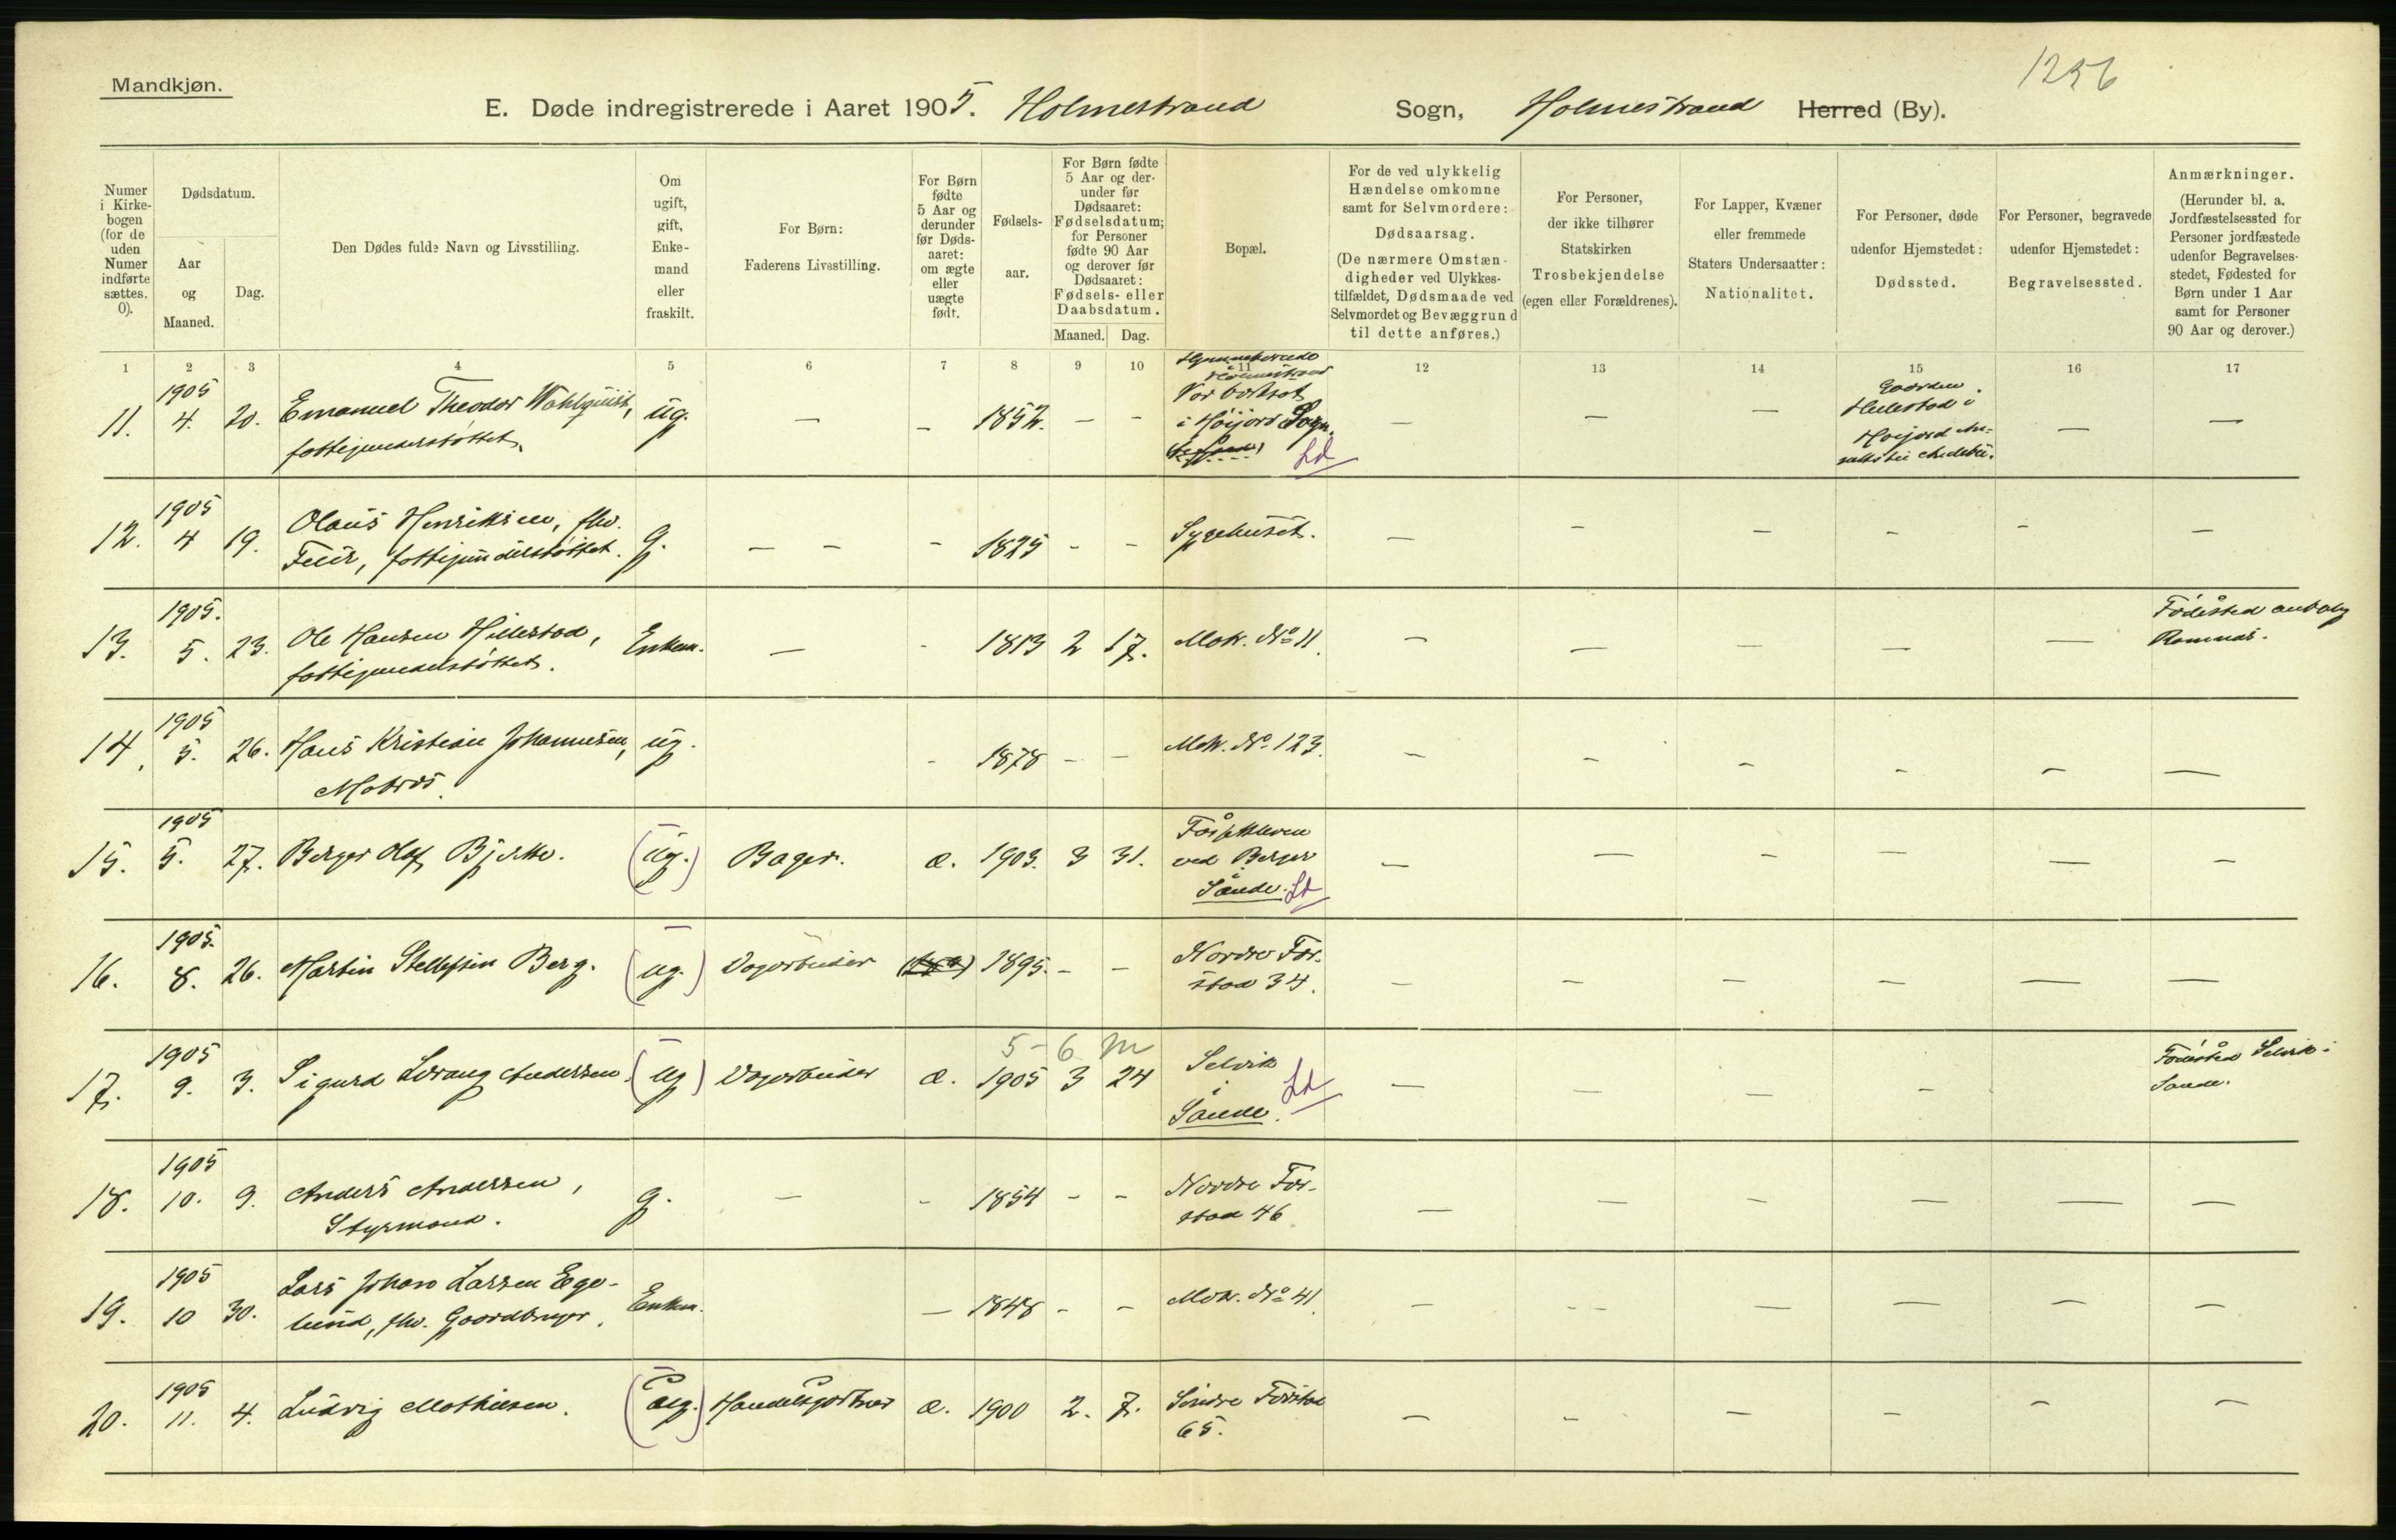 Mandkjøn.
1256
E. Døde indregistrerede i Aaret 1905. Holmestrand Sogn, Holmestrand Herred (By).
Numer i Kirkebogen (for de uden Numer indførte sættes. 0).
Dødsdatum.
Aar og Maaned.
Dag.
Den Dødes fulde Navn og Livsstilling.
Om ugift, gift, Enkemand eller fraskilt.
For Børn: Faderens Livsstilling.
For Børn fødte 5 Aar og derunder før Dødsaaret: om ægte eller uægte født.
Fødselsaar.
For Børn fødte 5 Aar og derunder før Dødsaaret: Fødselsdatum; for Personer fødte 90 Aar og derover før Dødsaaret: Fødsels- eller Daabsdatum.
Maaned. Dag.
Bopæl.
For de ved ulykkelig Hændelse omkomne samt for Selvmordere: Dødsaarsag. (De nærmere Omstændigheder ved Ulykkestilfældet, Dødsmaade ved Selvmordet og Bevæggrund til dette anføres.)
For Personer, der ikke tilhører Statskirken Trosbekjendelse (egen eller Forældrenes).
For Lapper, Kvæner eller fremmede Staters Undersaatter: Nationalitet.
For Personer, døde udenfor Hjemstedet: Dødssted.
For Personer, begravede udenfor Hjemstedet: Begravelsessted.
Anmærkninger. (Herunder bl. a. Jordfæstelsessted for Personer jordfæstede udenfor Begravelsesstedet, Fødested for Børn under 1 Aar samt for Personer 90 Aar og derover.)
1 2 3 4 5 6 7 8 9 10 11 12 13 14 15 16 17
11. 1905 4. 20. Emanuel Theodor Wahlquist, ug. — — 1852. — — i Høijord Sogn. Ld — — — Gaarden Hillestad i Høijord — —
fattigunderstøttet.
12. 1905 4 19. Olaus Henriksen, fhv. g. — — - 1825 - - Sygehuset. — - — - - —
Feier, fattigunderstøttet.
13. 1905. 5. 23. Ole Hansen Hillestad, Enkem. — - 1813 2 17. Matr. No 11. — — — — — Fødested
fattigunderstøttet. Ramnæs.
14. 1905 5. 26. Hans Kristian Johannesen, ug. - 1878 - — Matr. No. 123. — — — — — —
Matros.
15. 1905 5. 27. Berger Olaf Bjerke. (ug.) Bager. æ. 1903. 3 31. ved Berger — — — — — —
Sande. Ld
16. 1905. 8. 26. Martin Steffensen Berg. (ug.) Vognmander 1895. - - Nordre For- — — — — — —
stad 34.
5 - 6 m
17. 1905 9. 3. Sigurd Lorang Andersen. (ug) æ. 1905 3 24 Selvik — — — — Fødested Selvik i
i Sande. Ld Sande.
18. 1905 10. 9. Anders Andersen, g. — - 1854 - - Nordre For- — — — — — —
Styrmand. stad 46.
19. 1905 10 30. Lars Johan Larsen Ege- Enkem. — 1848 - - Matr. No 41. — - - — — — —
lund, fhv. Gaardbruger.
20. 1905 11. 4. Ludvig Mathiesen. (ug.) Handelsgartner æ. 1900 2. 7. Søndre Forstad — - — — — —
65.